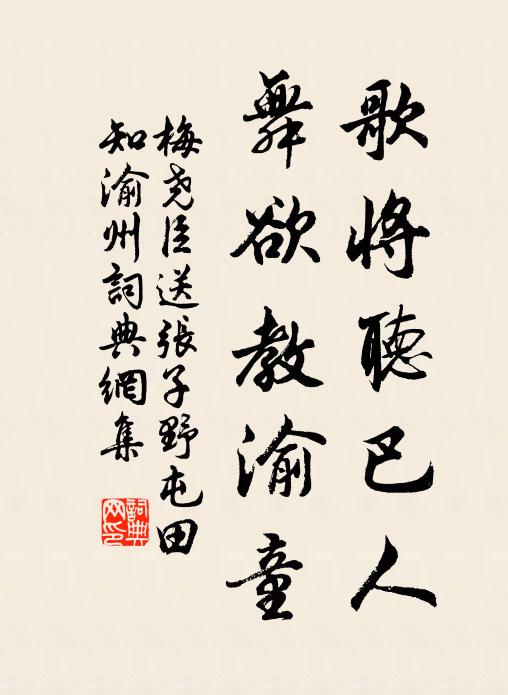 歌將聽巴人
舞欲教渝童
梅堯臣送張子野屯田
知渝州詞典網集
詞典
网印